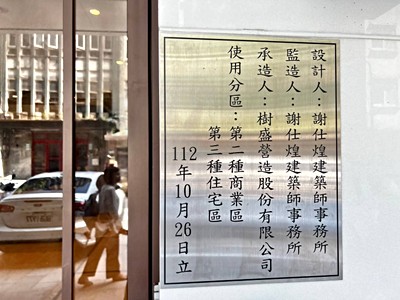 設計人：謝仕煌建築師事務所
監造人：謝仕煌建築師事務所
承造人：樹盛營造股份有限公司
使用分區：第二種商業區
第三種住宅區
112年10月26日立